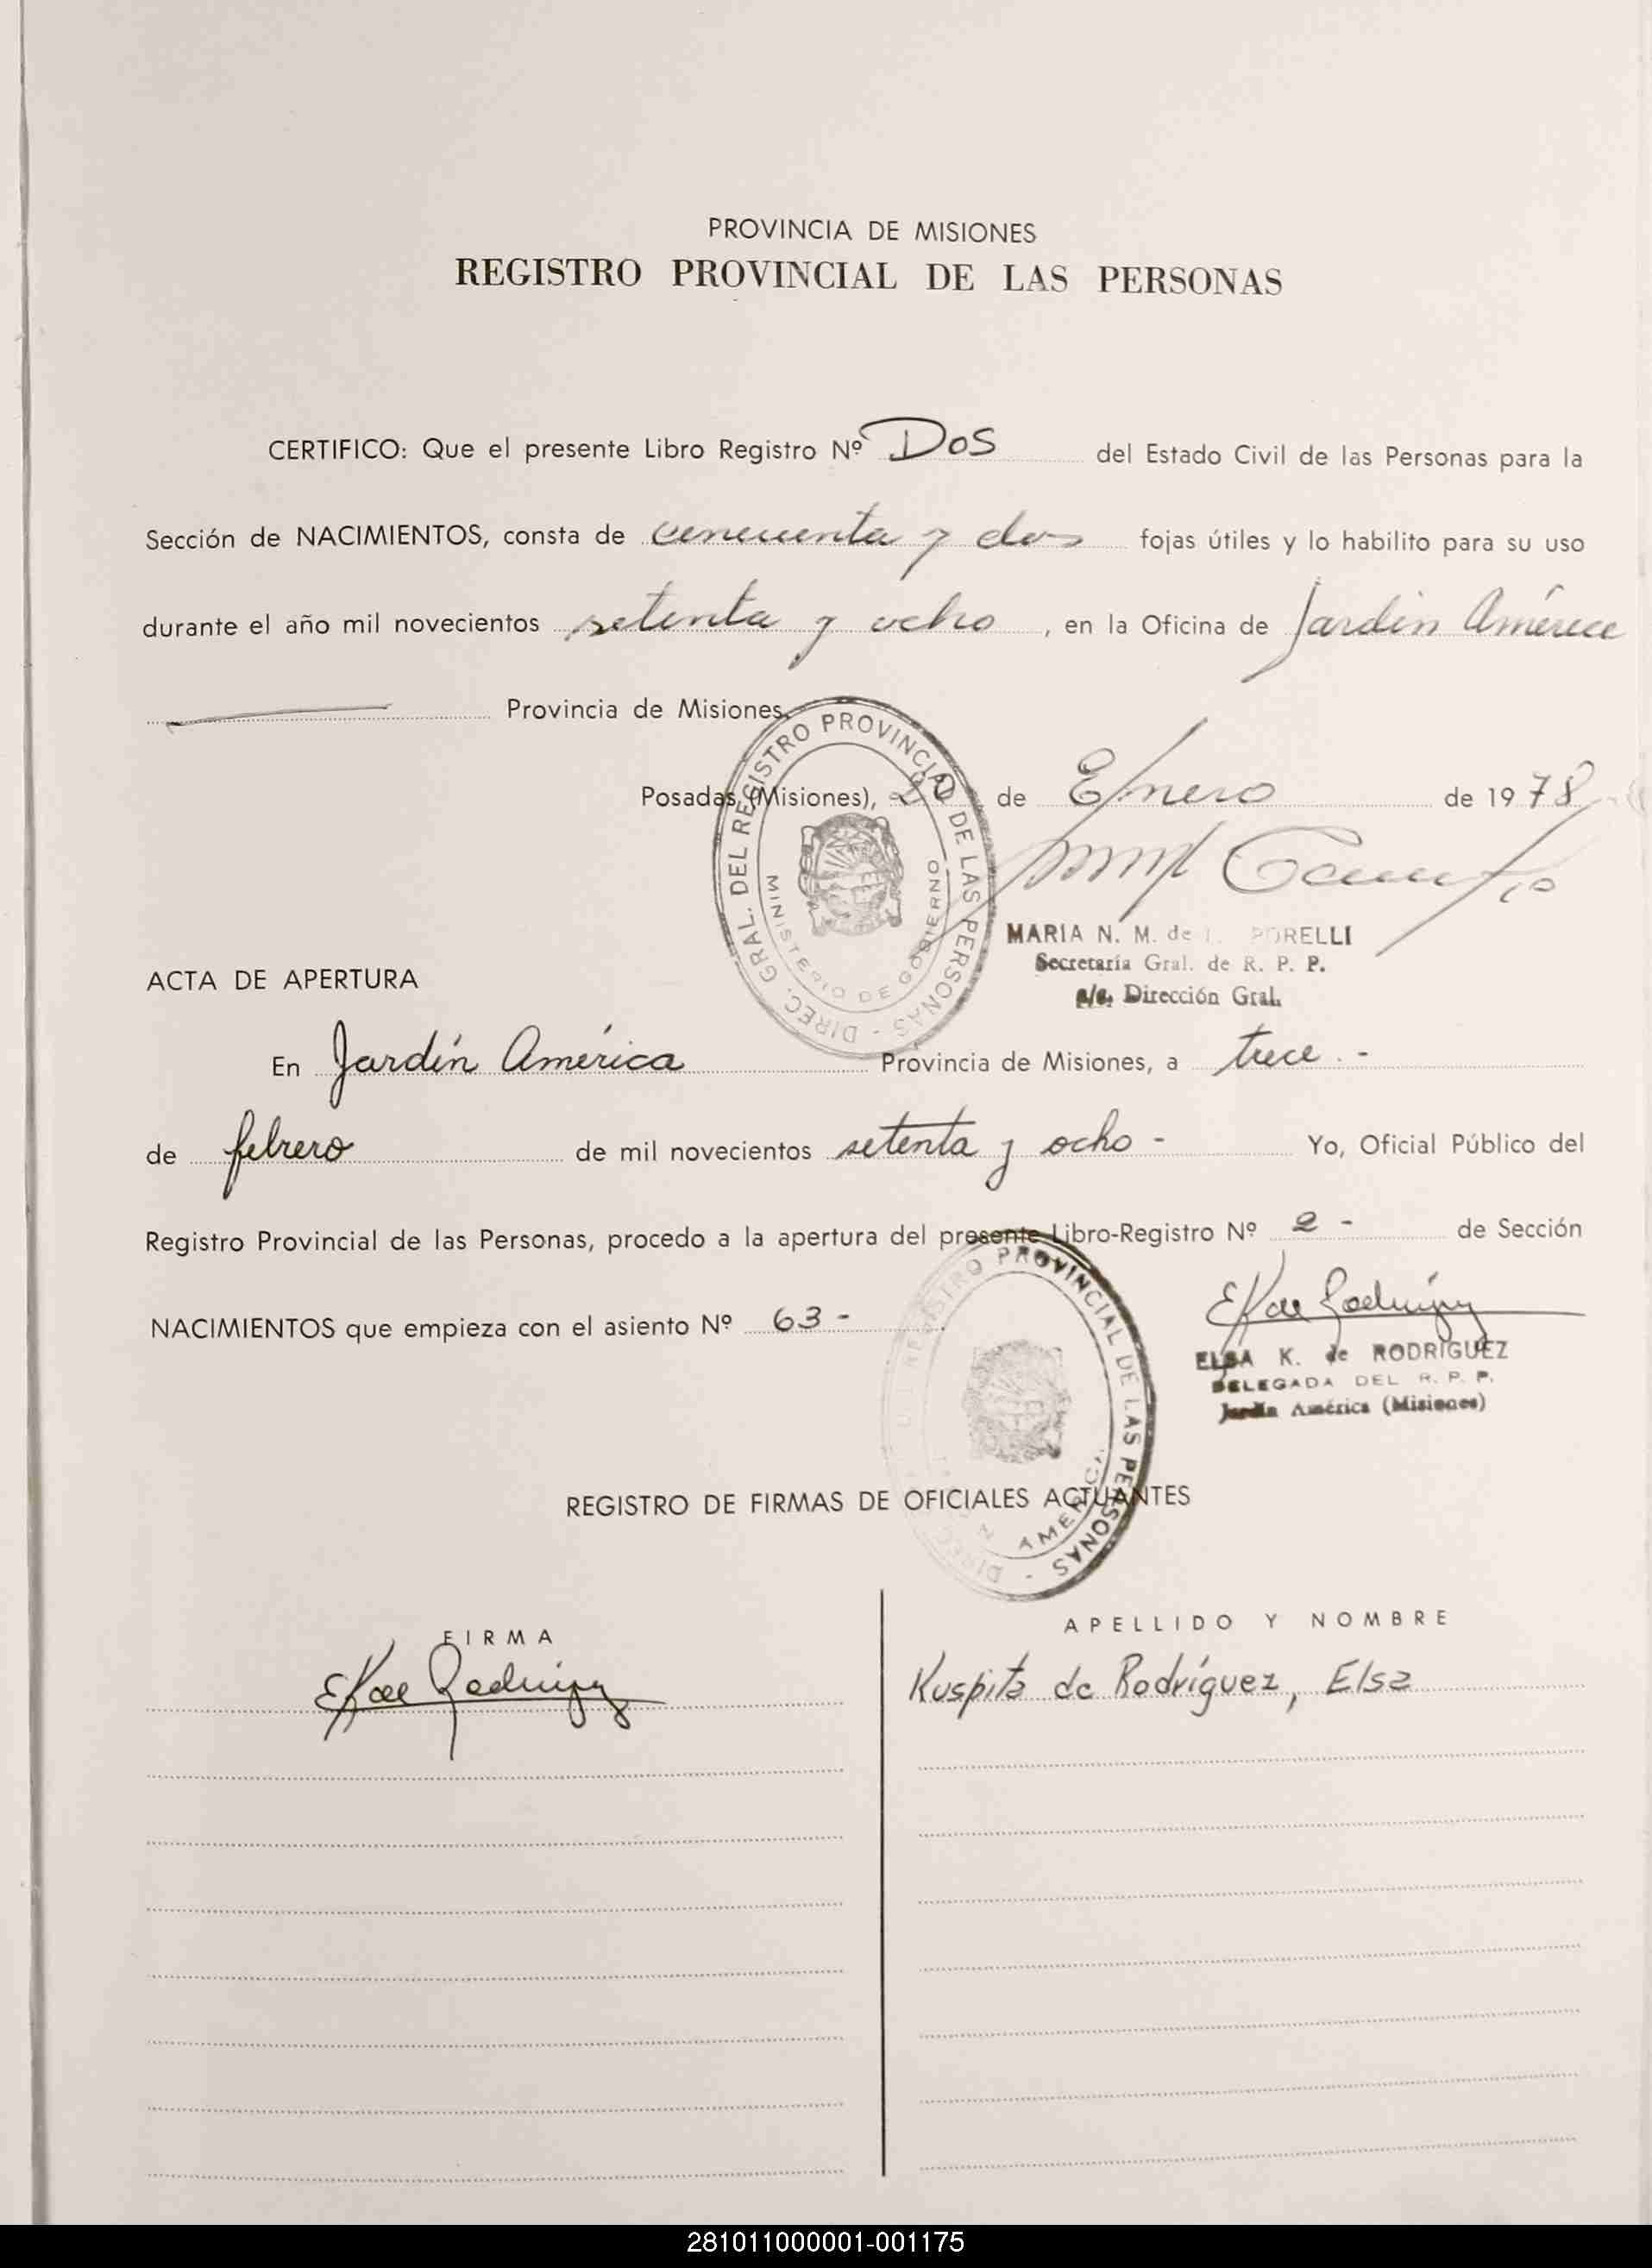 PROVINCIA DE MISIONES
REGISTRO PROVINCIAL DE LAS PERSONAS
CERTIFICO: Que el presente Libro Registro Nº Dos del Estado Civil de las Personas para la
Sección de NACIMIENTOS, consta de cincuenta y dos fojas útiles y lo habilito para su uso
durante el año mil novecientos setenta y ocho, en la Oficina de Jardín América
Provincia de Misiones.
Posadas, (Misiones), 20 de Enero de 1978
DIREC. GRAL. DEL REGISTRO PROVINCIAL DE LAS PERSONAS -
MINISTERIO DE GOBIERNO
MARIA N. M. de PORELLI
Secretaria Gral. de R. P. P.
a/c. Dirección Gral.
ACTA DE APERTURA
En Jardín América Provincia de Misiones, a trece.-
de febrero de mil novecientos setenta y ocho - Yo, Oficial Público del
Registro Provincial de las Personas, procedo a la apertura del presente Libro-Registro Nº 2 - de Sección
NACIMIENTOS que empieza con el asiento Nº 63 -
EK de Rodríguez
ELSA K. de RODRIGUEZ
DELEGADA DEL R. P. P.
Jardín América (Misiones)
REGISTRO PROVINCIAL DE LAS PERSONAS - DIREC
AMERICA
REGISTRO DE FIRMAS DE OFICIALES ACTUANTES
FIRMA
APELLIDO Y NOMBRE
EK de Rodríguez
Kuspita de Rodríguez, Elsa
281011000001-001175